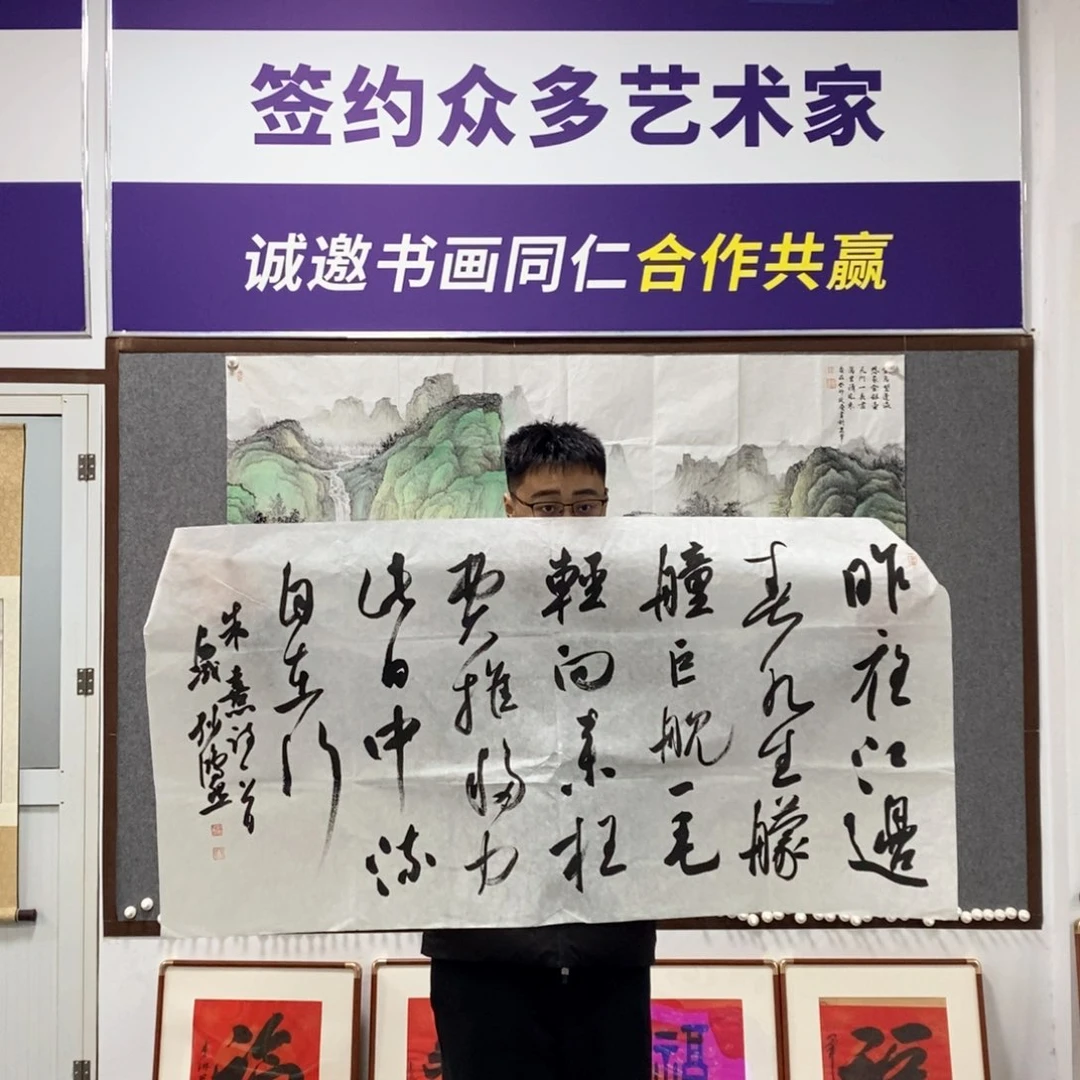 签约众多艺术家
诚邀书画同仁合作共赢
昨夜江邊
春水生艨
艟巨舰一毛
輕向来枉
費推移力
此日中流
自在行
朱熹诗一首